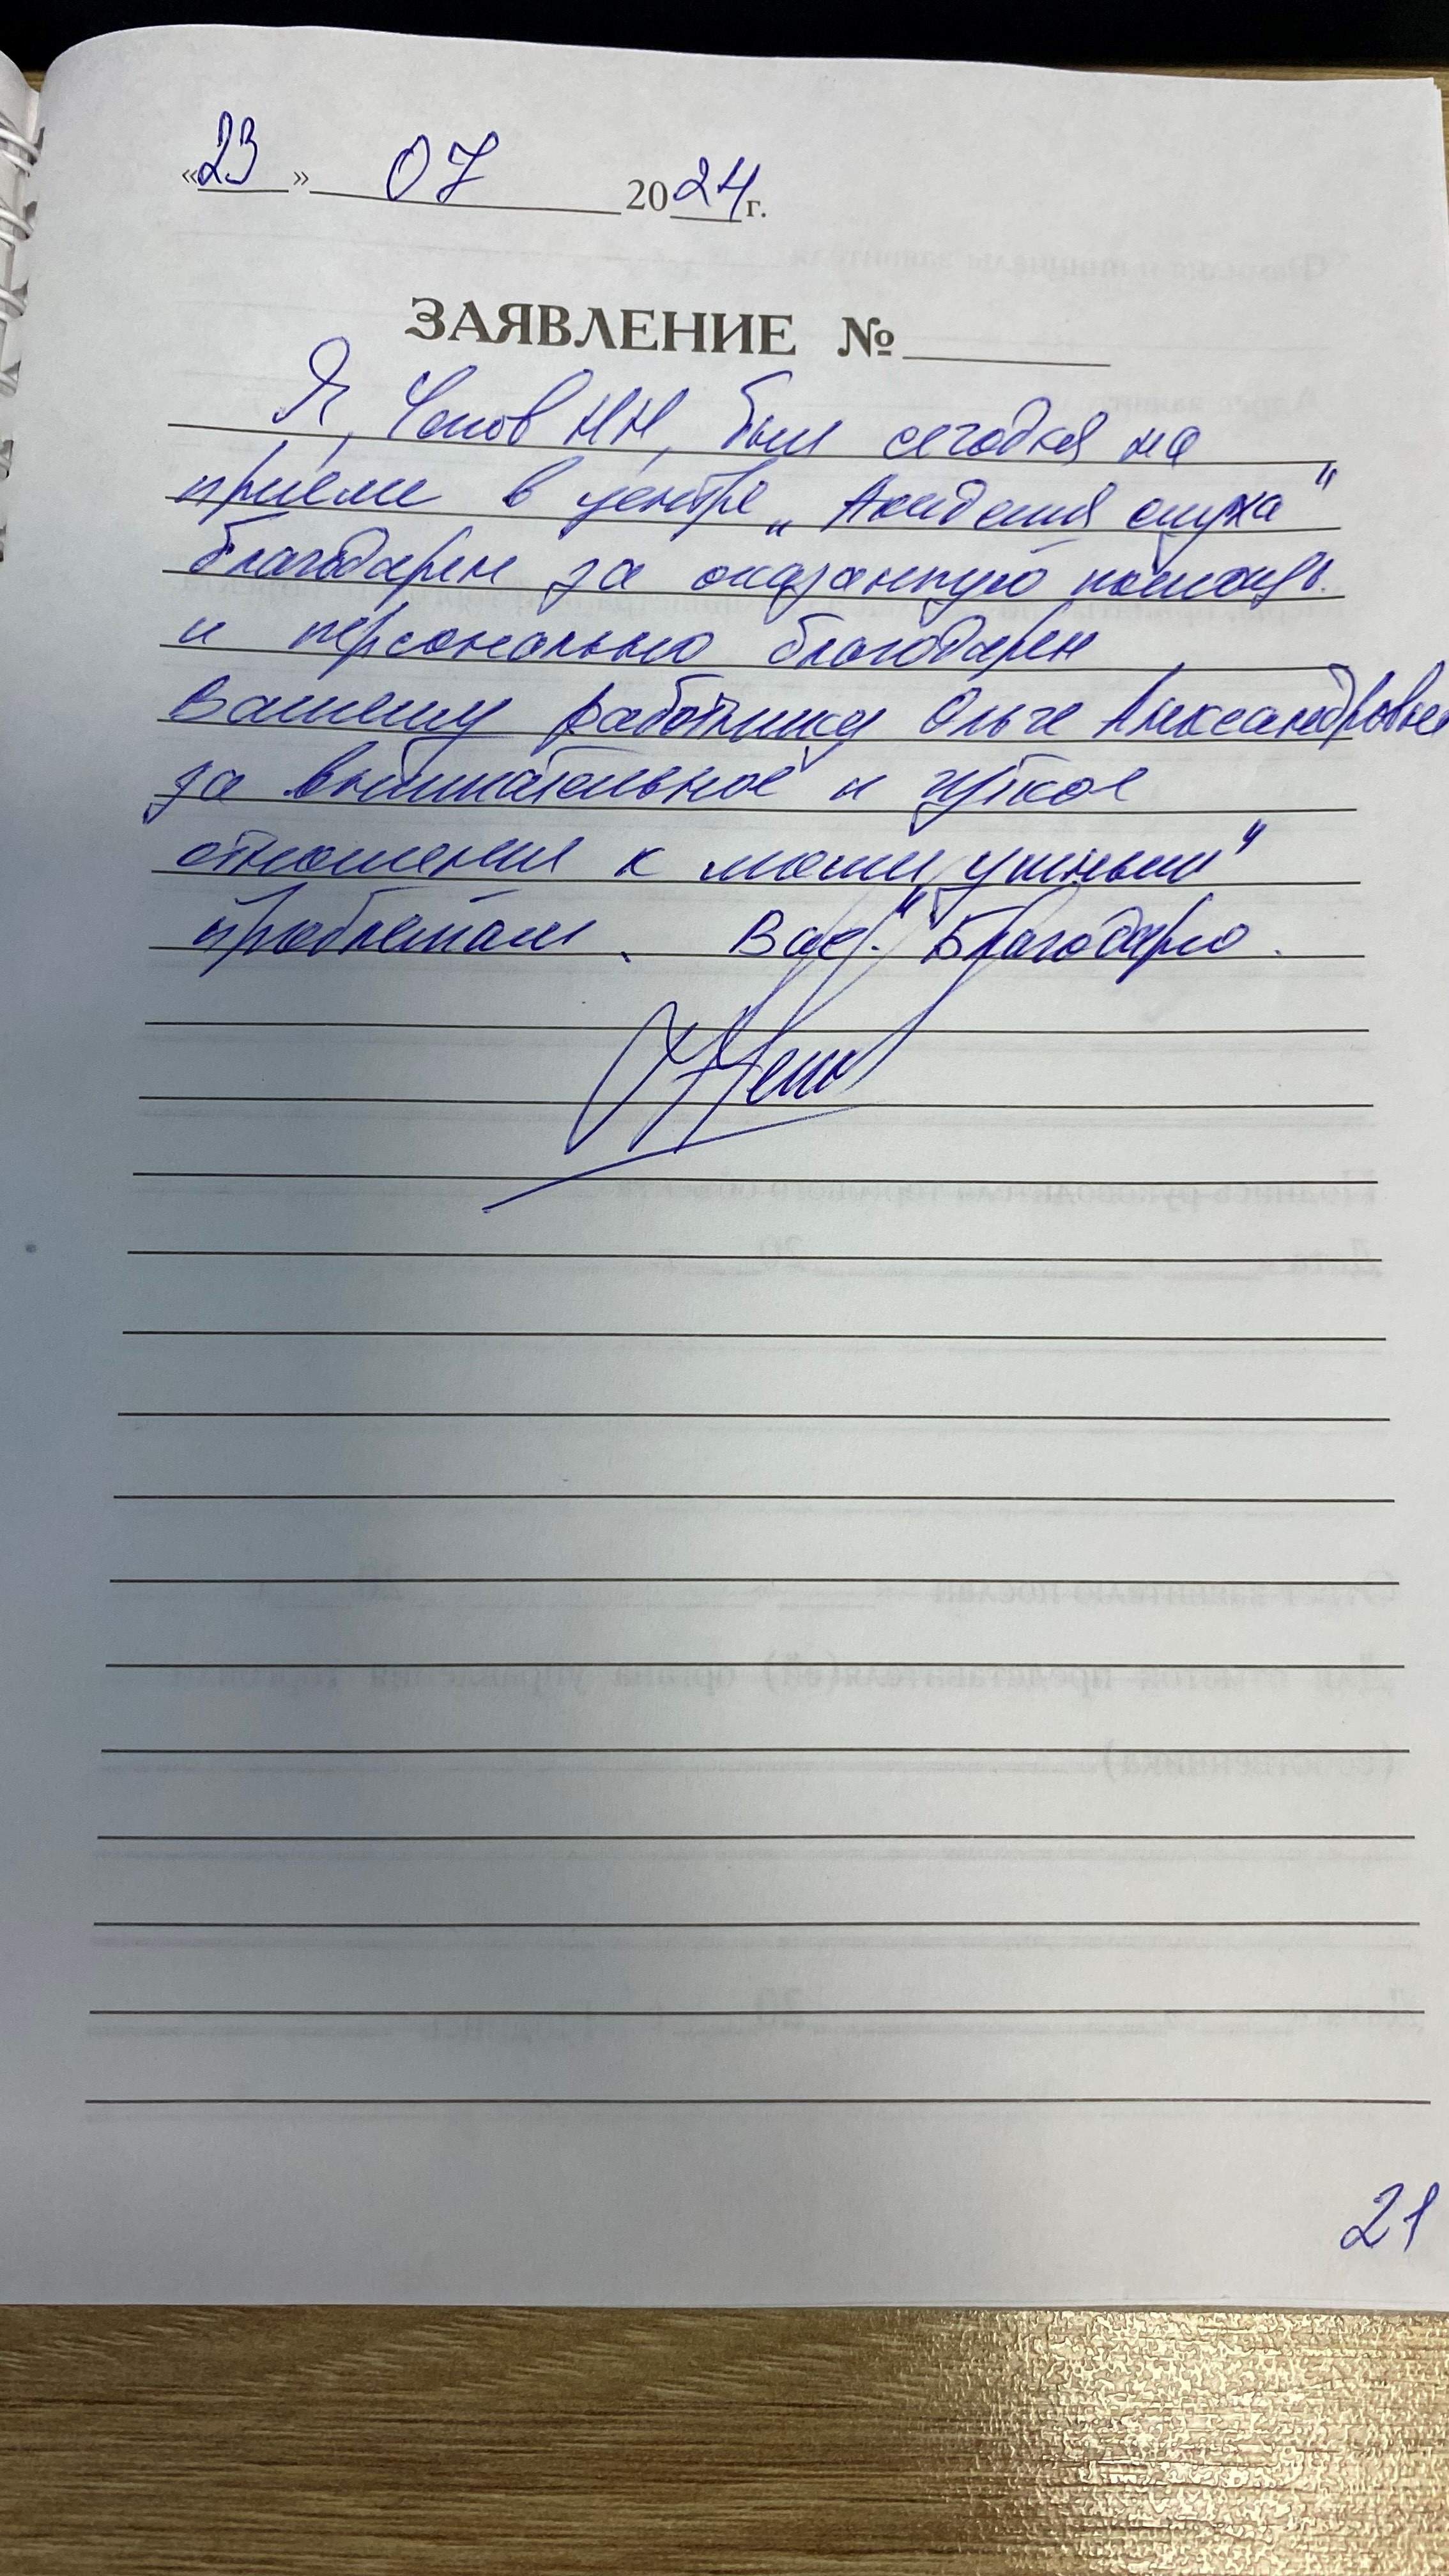 «23» 07 2024 г.
ЗАЯВЛЕНИЕ №
Я, НН, был сегодня на
приёме в центре „Академия слуха"
благодарен за оказанную помощь
и персонально благодарен
Вашему работнику Ольге Александровне
за внимательное и чуткое
отношения к моим „ушным"
проблемам. Благодарю.
21